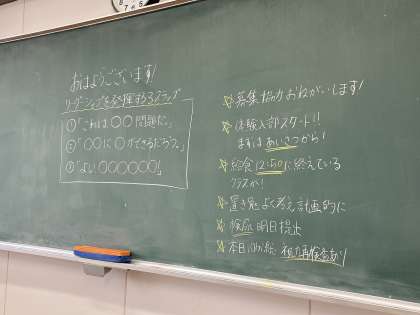 おはようございます!
リーダーシップを発揮する3ステップ
①「これは〇〇問題だ。」
②「〇〇に〇ができるだろう。」
③「よい!〇〇〇〇〇〇!」
☆募集協力おねがいします!
☆体験入部スタート!!
まずはあいさつから!
☆給食12:50に終えている
クラスか!
☆置き勉よく考え計画的に
☆検尿明日提出
☆本日 視力再検査あり